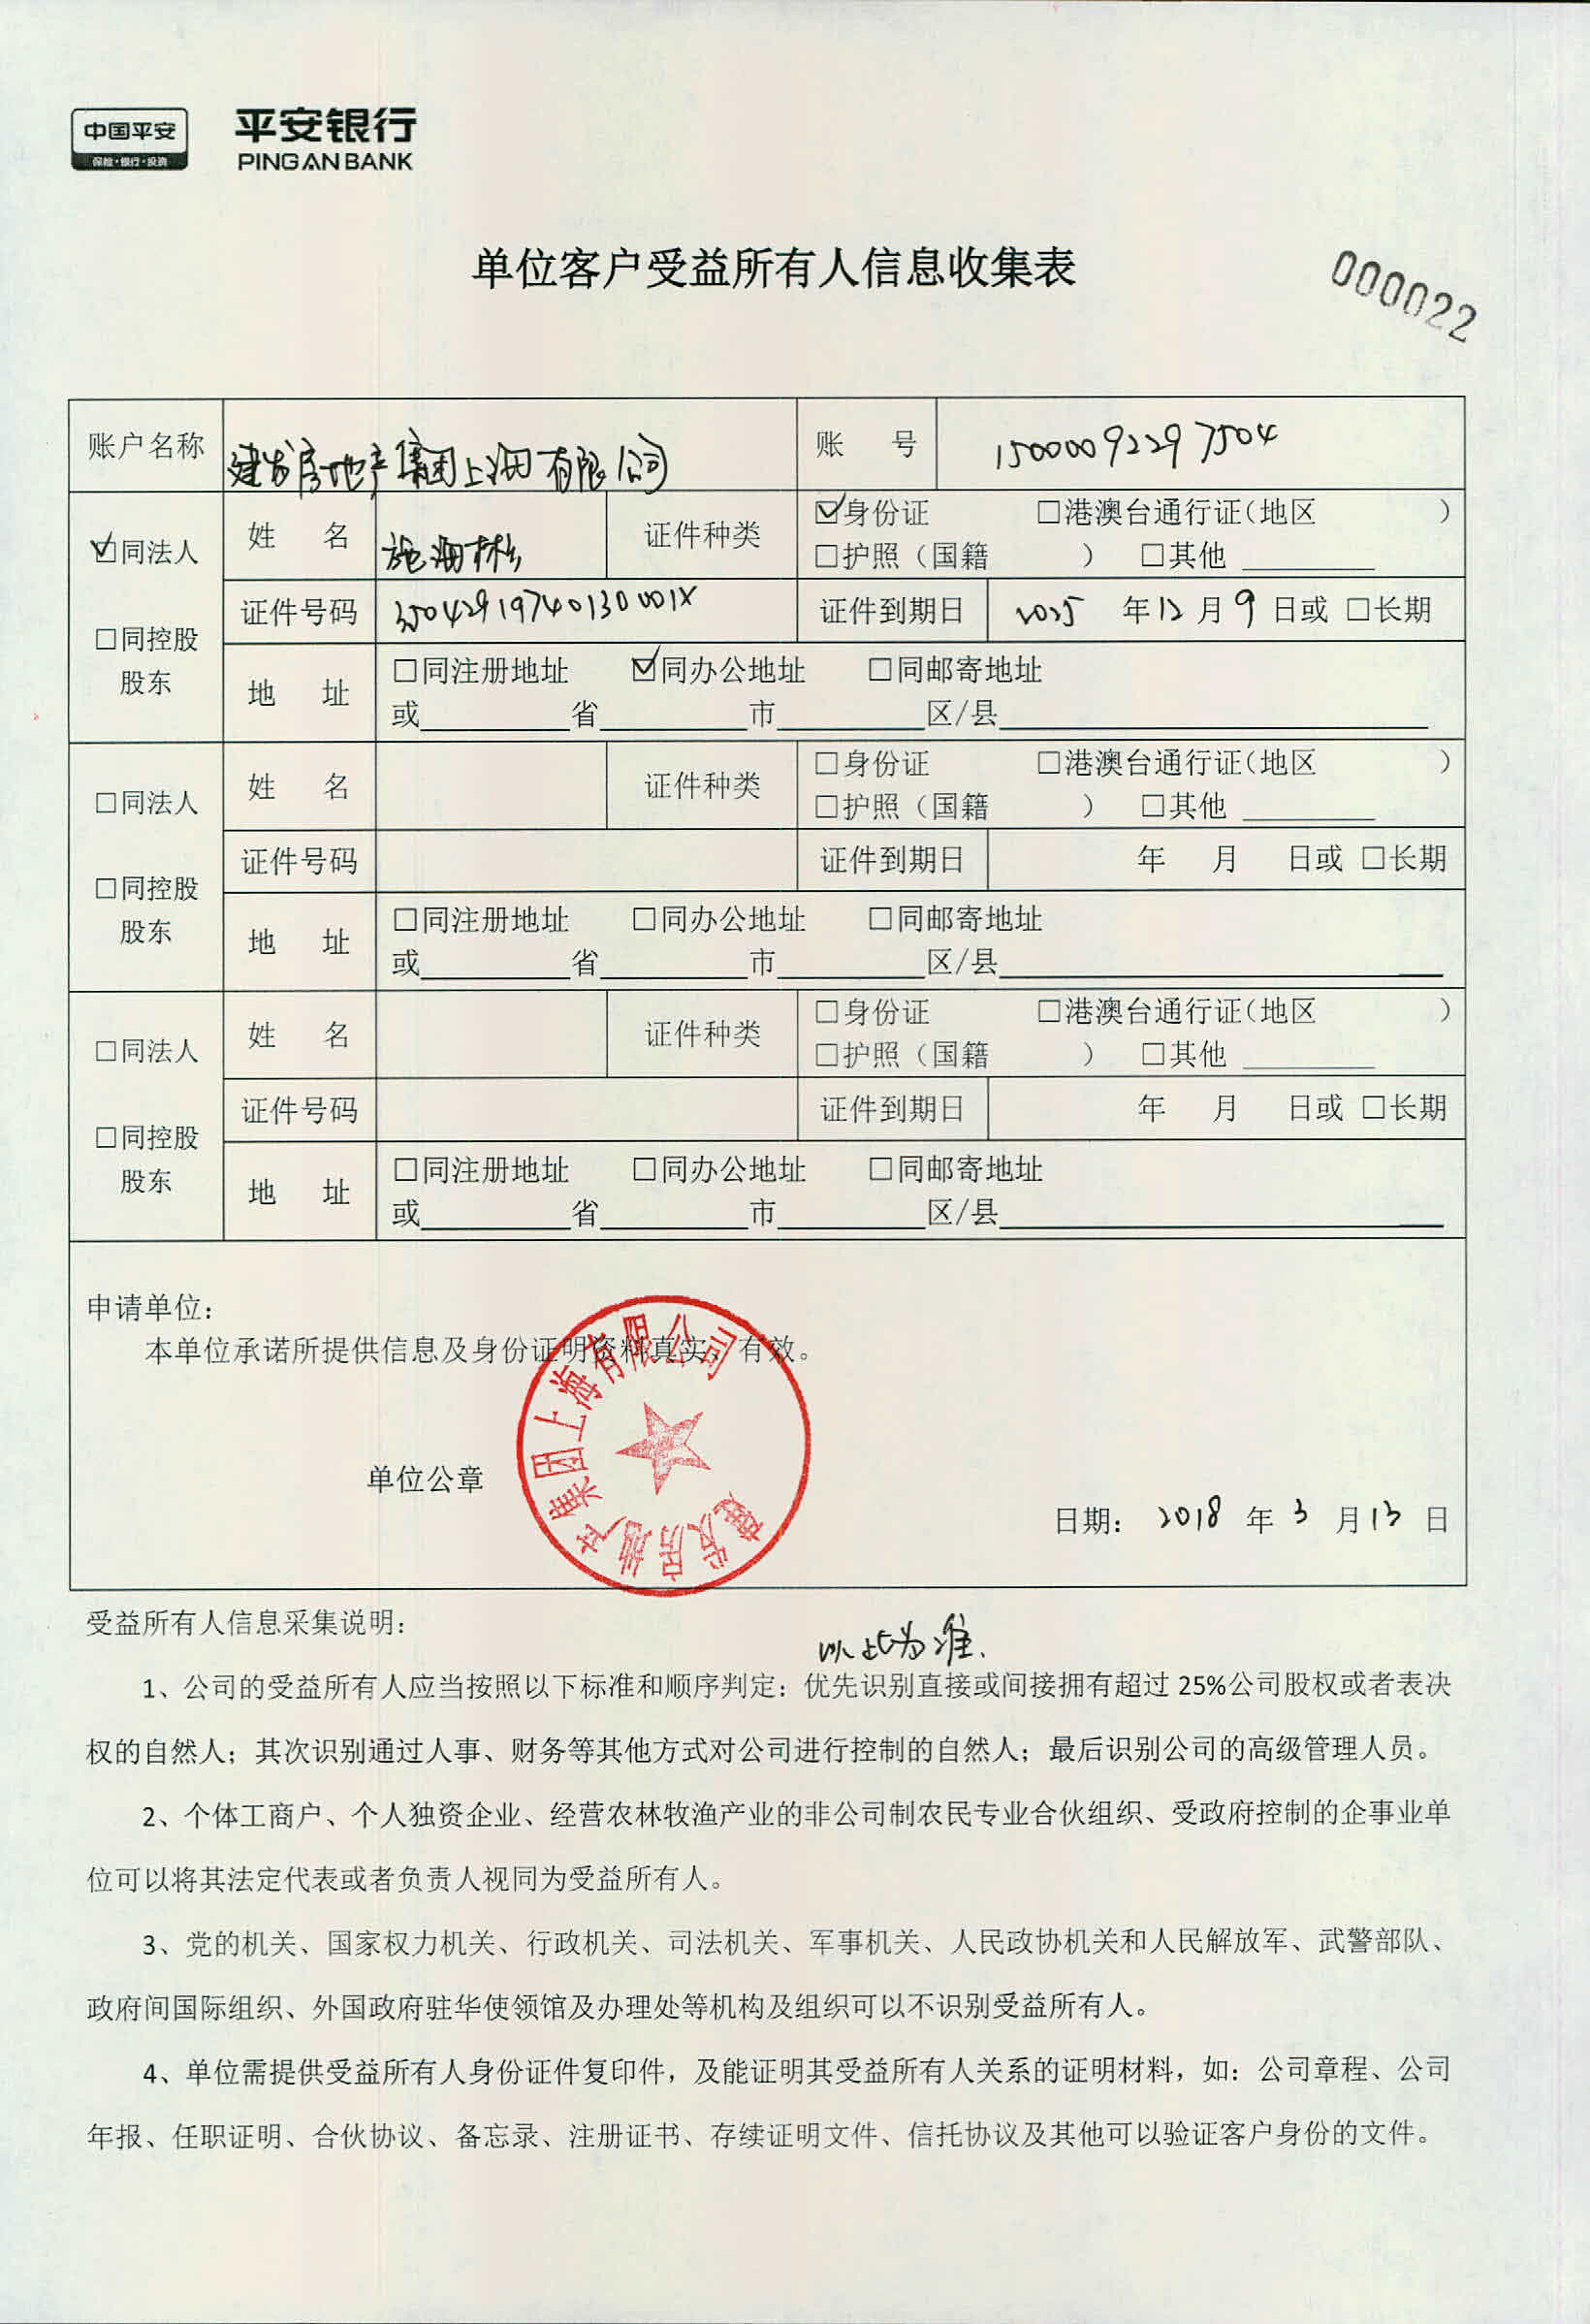 中国平安
保险·银行·投资
平安银行
PINGAN BANK
单位客户受益所有人信息收集表
000022
账户名称 建发房地产集团上海有限公司 账 号 15000092297504
☑同法人
□同控股
股东
姓 名 施海彬 证件种类 ☑身份证 □港澳台通行证(地区 )
□护照（国籍 ） □其他
证件号码 35042919740130001X 证件到期日 2035 年 12 月 9 日或 □长期
地 址 □同注册地址 ☑同办公地址 □同邮寄地址
或 省 市 区/县
□同法人
□同控股
股东
姓 名 证件种类 □身份证 □港澳台通行证(地区 )
□护照（国籍 ） □其他
证件号码 证件到期日 年 月 日或 □长期
地 址 □同注册地址 □同办公地址 □同邮寄地址
或 省 市 区/县
□同法人
□同控股
股东
姓 名 证件种类 □身份证 □港澳台通行证(地区 )
□护照（国籍 ） □其他
证件号码 证件到期日 年 月 日或 □长期
地 址 □同注册地址 □同办公地址 □同邮寄地址
或 省 市 区/县
申请单位：
本单位承诺所提供信息及身份证明资料真实，有效。
建发房地产集团上海有限公司
单位公章
日期： 2018 年 3 月 13 日
受益所有人信息采集说明：
以此为准.
1、公司的受益所有人应当按照以下标准和顺序判定：优先识别直接或间接拥有超过 25%公司股权或者表决
权的自然人；其次识别通过人事、财务等其他方式对公司进行控制的自然人；最后识别公司的高级管理人员。
2、个体工商户、个人独资企业、经营农林牧渔产业的非公司制农民专业合伙组织、受政府控制的企事业单
位可以将其法定代表或者负责人视同为受益所有人。
3、党的机关、国家权力机关、行政机关、司法机关、军事机关、人民政协机关和人民解放军、武警部队、
政府间国际组织、外国政府驻华使领馆及办理处等机构及组织可以不识别受益所有人。
4、单位需提供受益所有人身份证件复印件，及能证明其受益所有人关系的证明材料，如：公司章程、公司
年报、任职证明、合伙协议、备忘录、注册证书、存续证明文件、信托协议及其他可以验证客户身份的文件。